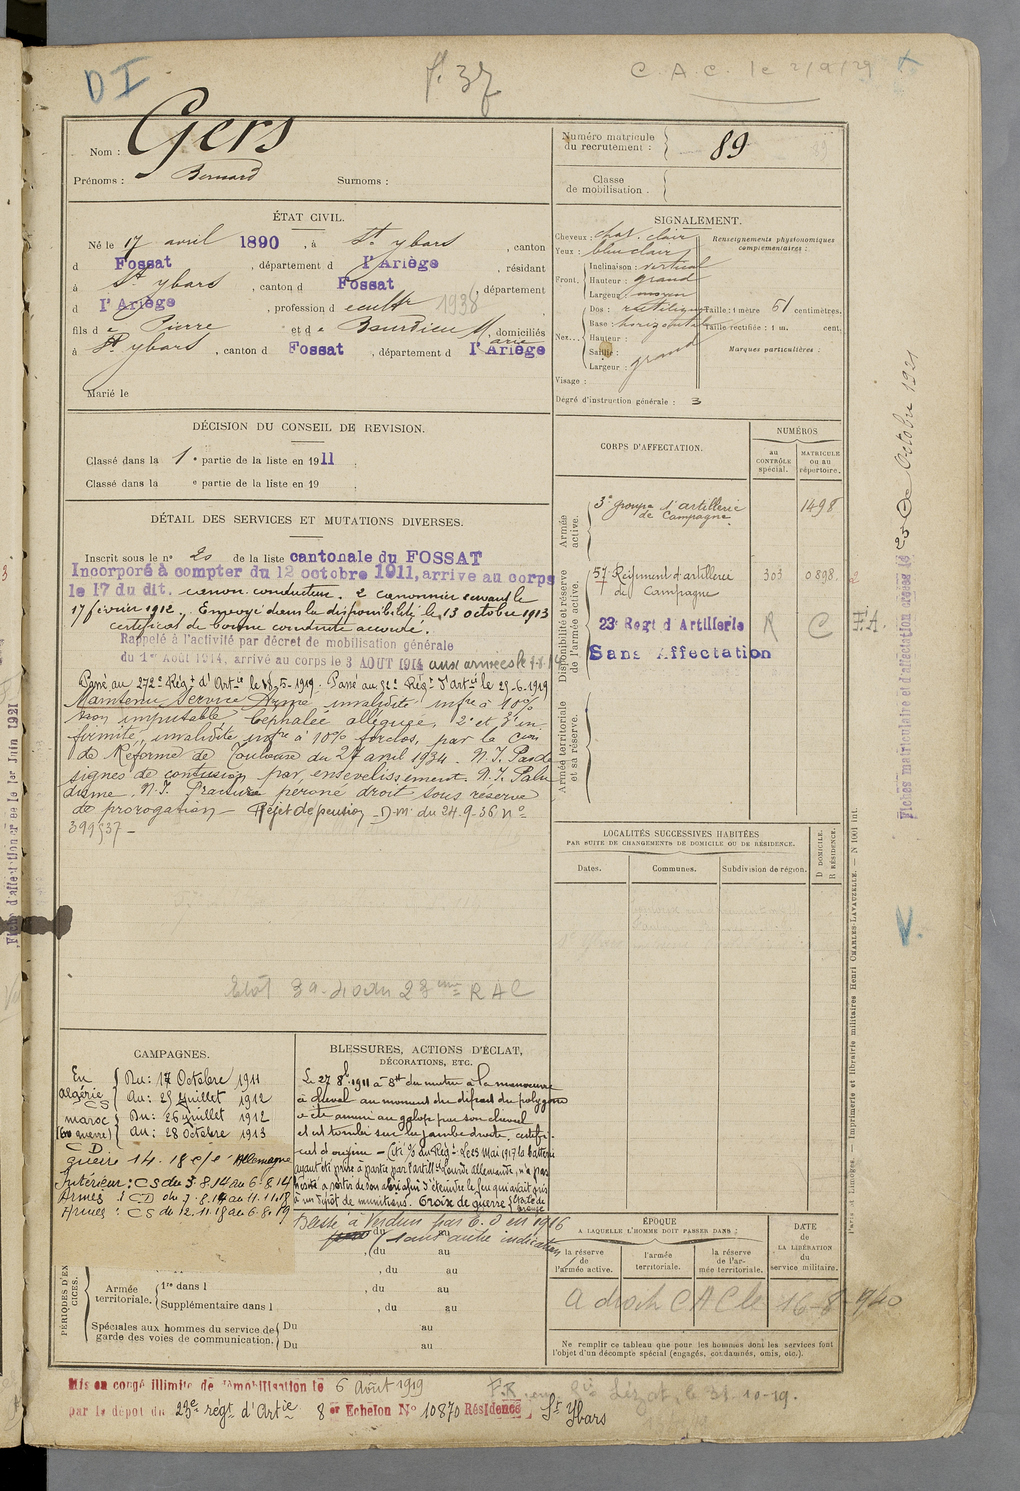 D I
f. 37
C. A. C. le 2/9/29
Nom : Gers
Prénoms : Bernard Surnoms :
Numéro matricule du recrutement : 89
Classe de mobilisation :
ÉTAT CIVIL.
Né le 17 avril 1890, à St ybars, canton
d Fossat, département d l'Ariège, résidant
à St ybars, canton d Fossat, département
d l'Ariège, profession de cultr 1938
fils de Pierre et de Bourdieu Marie, domiciliés
à St ybars, canton d Fossat, département d l'Ariège
Marié le
SIGNALEMENT.
Cheveux : chat. clair
Yeux : bleu clair
Front. Inclinaison : vertical
Hauteur : grand
Largeur : moyen
Nez... Dos : rectiligne
Base : horizontale
Hauteur :
Saillie :
Largeur : grand
Visage :
Renseignements physionomiques complémentaires :
Taille : 1 mètre 51 centimètres.
Taille rectifiée : 1 m. cent.
Marques particulières :
Degré d'instruction générale : 3
DÉCISION DU CONSEIL DE REVISION.
Classé dans la 1e partie de la liste en 1911
Classé dans la e partie de la liste en 19
DÉTAIL DES SERVICES ET MUTATIONS DIVERSES.
Inscrit sous le no 20 de la liste cantonale du FOSSAT
Incorporé à compter du 12 octobre 1911, arrive au corps
le 17 du dit. canon. conducteur. 2e canonnier servant le
17 février 1912. Envoyé dans la disponibilité le 13 octobre 1913
certificat de bonne conduite accordé.
Rappelé à l'activité par décret de mobilisation générale
du 1er Août 1914, arrivé au corps le 3 AOUT 1914 aux armées le
Passé au 272e Régt d'Artie le 5-1919. Passé au Régt d'Artie le 25-6-1919
Maintenu Service Armé invalidité infre à 10%
non imputable Céphalée alléguée, 2e et 3e in-
firmité, invalidité infre à 10% forclos, par la Com
de Réforme de Toulouse du 27 avril 1934. N.I. Pas de
signes de contusion par ensevelissement. N.I. Palu
disme. N.I. Fracture péroné droit sous réserve
de prorogation - Rejet de pension - D.M. du 24-9-36 No
399537 -
23me R A C
CORPS D'AFFECTATION.
NUMÉROS
au CONTRÔLE spécial.
MATRICULE ou au répertoire.
Armée active.
3e groupe d'artillerie de Campagne. 1498
Disponibilité et réserve de l'armée active.
57e Régiment d'artillerie de Campagne 303 0898
23e Regt d Artillerie R C F.A.
Sans Affectation
Armée territoriale et sa réserve.
LOCALITÉS SUCCESSIVES HABITÉES
PAR SUITE DE CHANGEMENTS DE DOMICILE OU DE RÉSIDENCE.
Dates.
Communes.
Subdivision de région.
D DOMICILE.
R RÉSIDENCE.
CAMPAGNES.
En Algérie CS Du : 17 Octobre 1911
Au : 25 Juillet 1912
maroc (en guerre) Du : 26 Juillet 1912
Au : 28 Octobre 1913
CD
guerre 14.18 c/e Allemagne
Intérieur : CS du 3.8.14 au 6.8.14
Armés : CD du 7.8.14 au 11.11.18
Armés : CS du 12.11.18 au 6.8.19
BLESSURES, ACTIONS D'ÉCLAT,
DÉCORATIONS, ETC.
Le 27 8bre 1911 à 8h du matin à la manœuvre
à cheval au moment du départ du polygone
a été amené au galop par son cheval
et est tombé sur la jambe droite, certifi-
cat d'origine - Cité % du Régt : Le 25 Mai 1917 la batterie
ayant été prise à partie par l'artillie lourde allemande, n'a pas
hésité à sortir de son abri afin d'éteindre le feu qui avait pris
à un dépôt de munitions. Croix de guerre Etoile de bronze
Blessé à Verdun par E. O en 1916
sans autre indication
, du au
, du au
, du au
PÉRIODES D'EXERCICES.
Armée territoriale. 1re dans l , du au
Supplémentaire dans l , du au
Spéciales aux hommes du service de garde des voies de communication. Du au
Du au
ÉPOQUE
A LAQUELLE L'HOMME DOIT PASSER DANS :
la réserve de l'armée active.
l'armée territoriale.
la réserve de l'armée territoriale.
DATE de LA LIBÉRATION du service militaire.
a droit C A C le 16-8-1940
Ne remplir ce tableau que pour les hommes dont les services font
l'objet d'un décompte spécial (engagés, condamnés, omis, etc.).
Mis en congé illimité de démobilisation le 6 Août 1919
par le dépôt du 23e régt d'Artie 8er Echelon No 10870 Résidence St Ybars
Lézat, le 31-10-19.
Fiches matriculaire et d'affectation créées le 25 Octobre 1921
Paris et Limoges. — Imprimerie et librairie militaires Henri CHARLES-LAVAUZELLE. — N 1001 int.
Fiche d'affectation créée le 1er Juin 1921